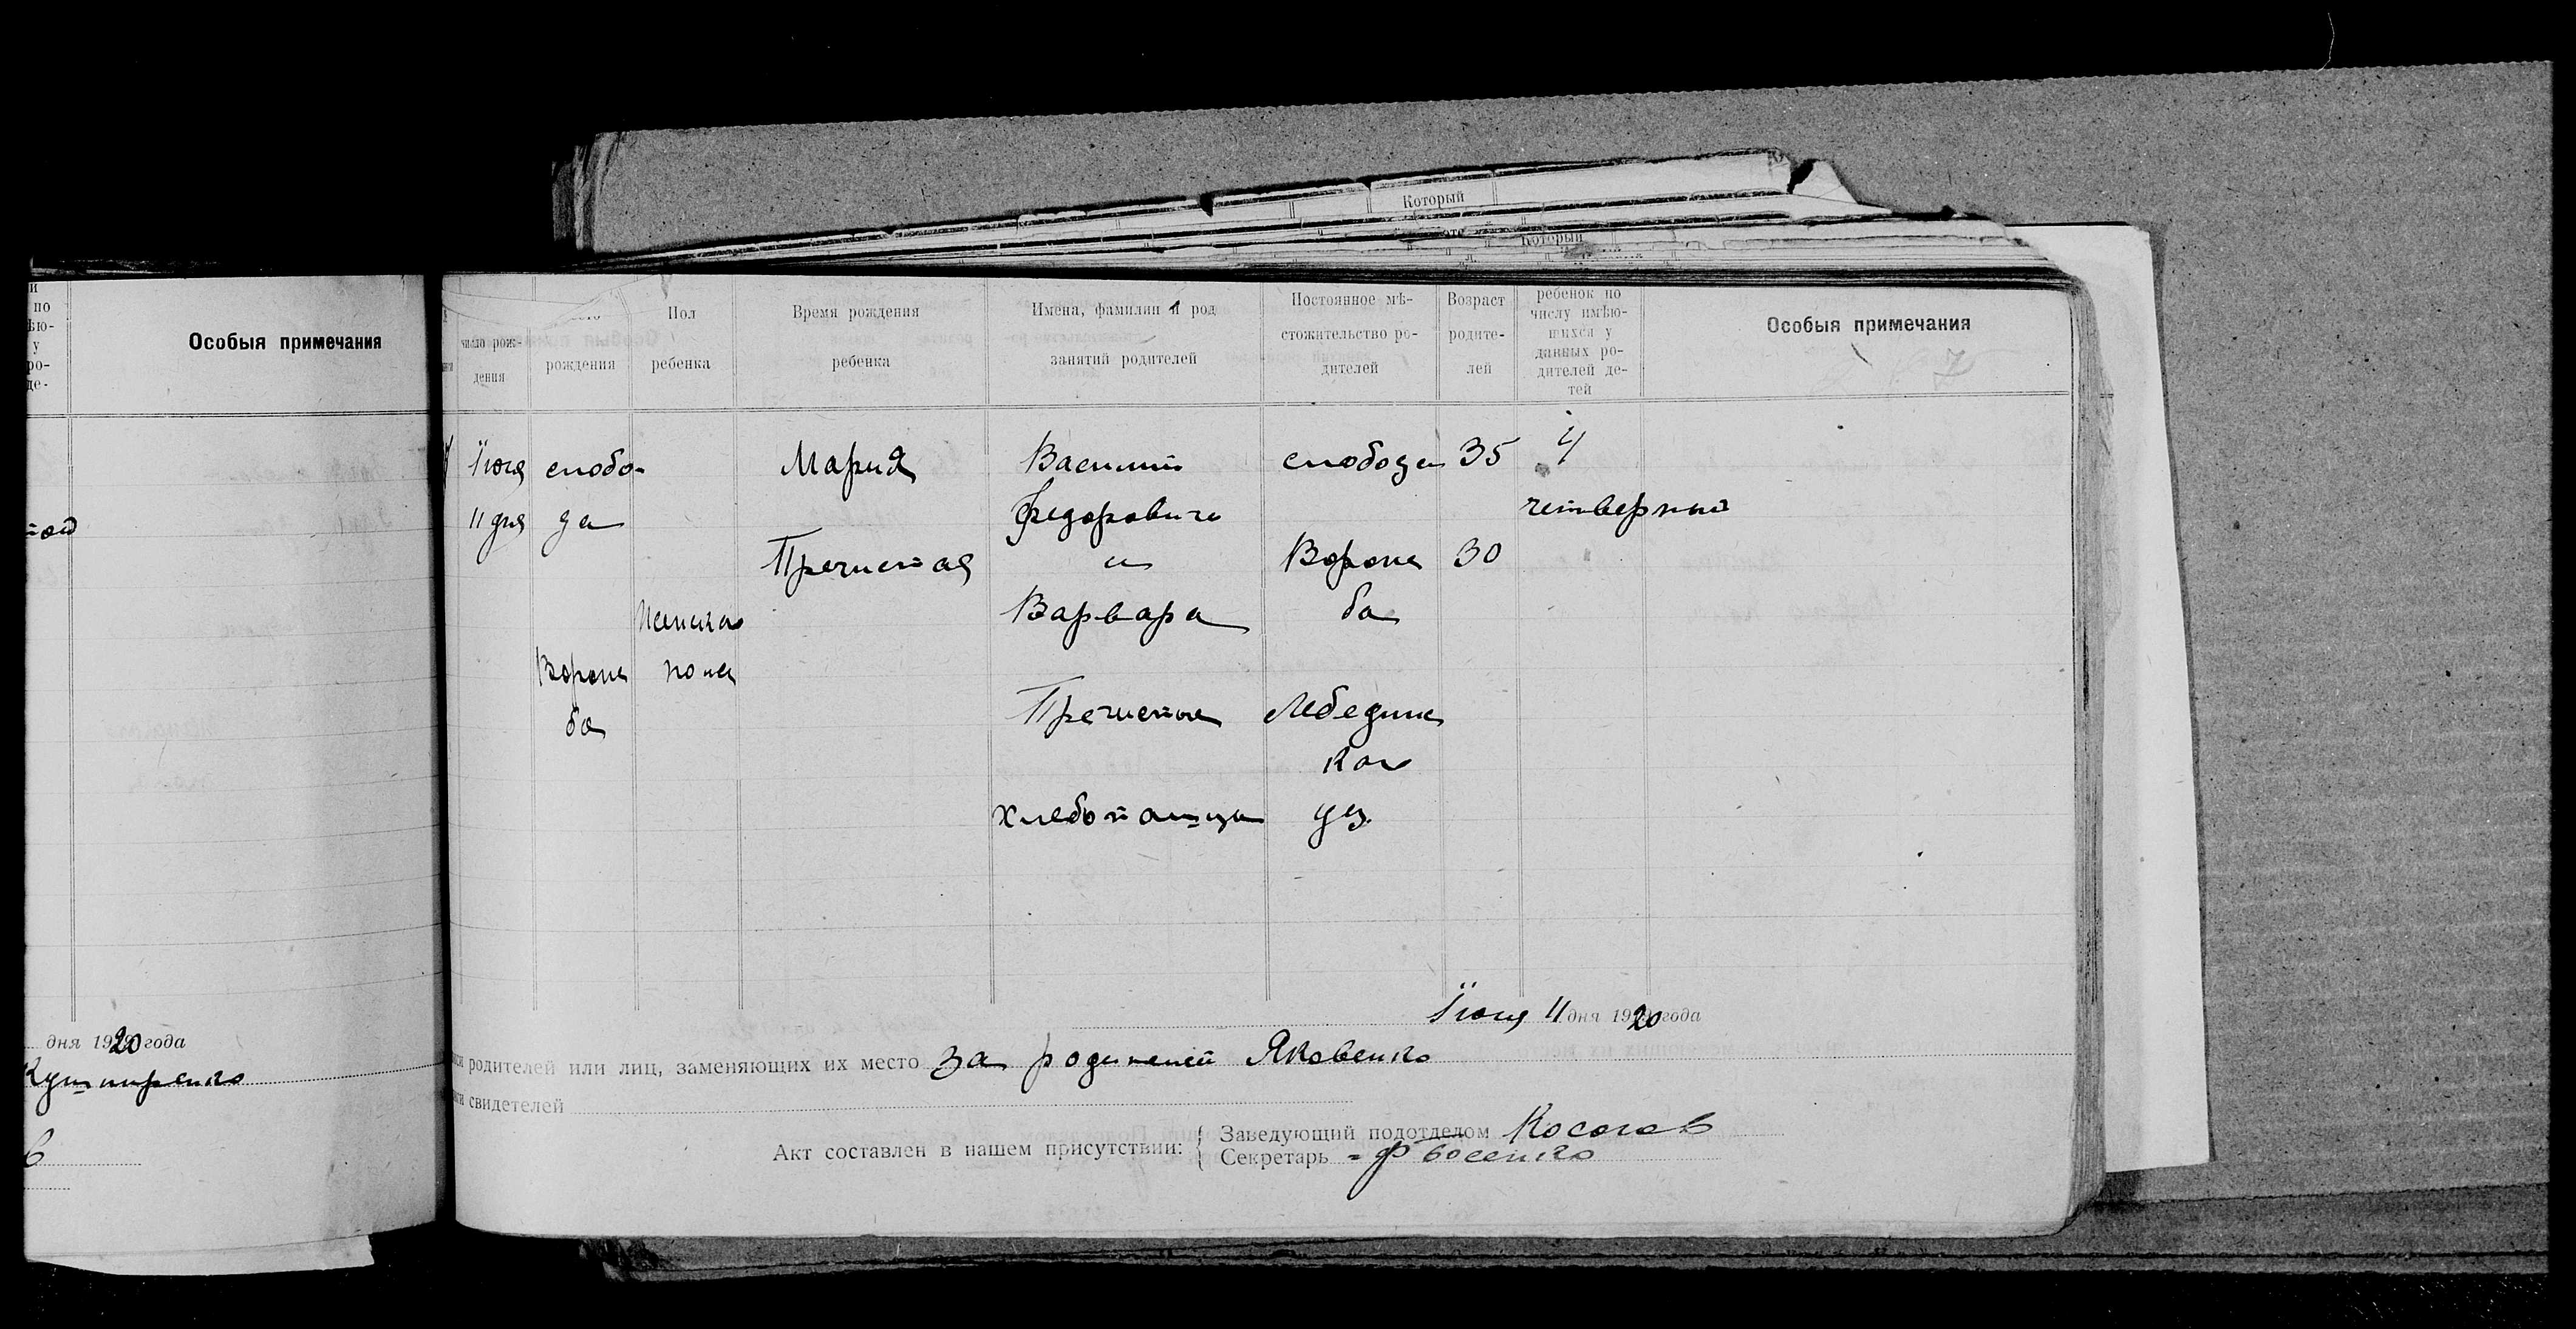 Который
Который
и
по
ѣю-
у
ро-
де-
Особыя примечания
дня 1920 года
Кушниренко
в
число рож-
дения
рождения
Пол
ребенка
Время рождения
ребенка
Имена, фамилии и род
занятий родителей
Постоянное мѣ-
стожительство ро-
дителей
Возраст
родите-
лей
ребенок по
числу имѣю-
щихся у
данных ро-
дителей де-
тей
Особыя примечания
7
Июня
11 дня
слобо-
да
Ворож
ба
Женска
пола
Мария
Пречистая
Василий
Федорович
и
Варвара
Пречистые
хлебопашцы
слобода
Ворож
ба
Лебединс
каго
уез.
35
30
4
четверный
Июня 11 дня 1920 года
родителей или лиц, заменяющих их место за родителей Яковенко
свидетелей
Акт составлен в нашем присутствии:
Заведующий подотделом Косогов
Секретарь